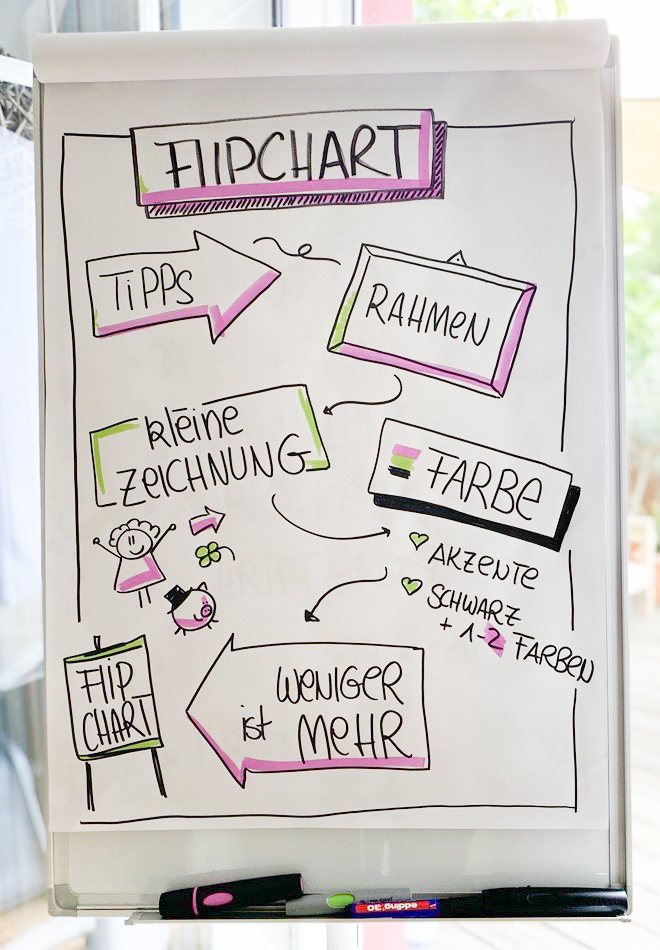 FLIPCHART
TiPPS
RAHMEN
kleine
ZEICHNUNG
FARBE
AKZENTE
SCHWARZ
+ 1-2 FARBEN
FLIP
CHART
WENIGER
ist MEHR
edding 30